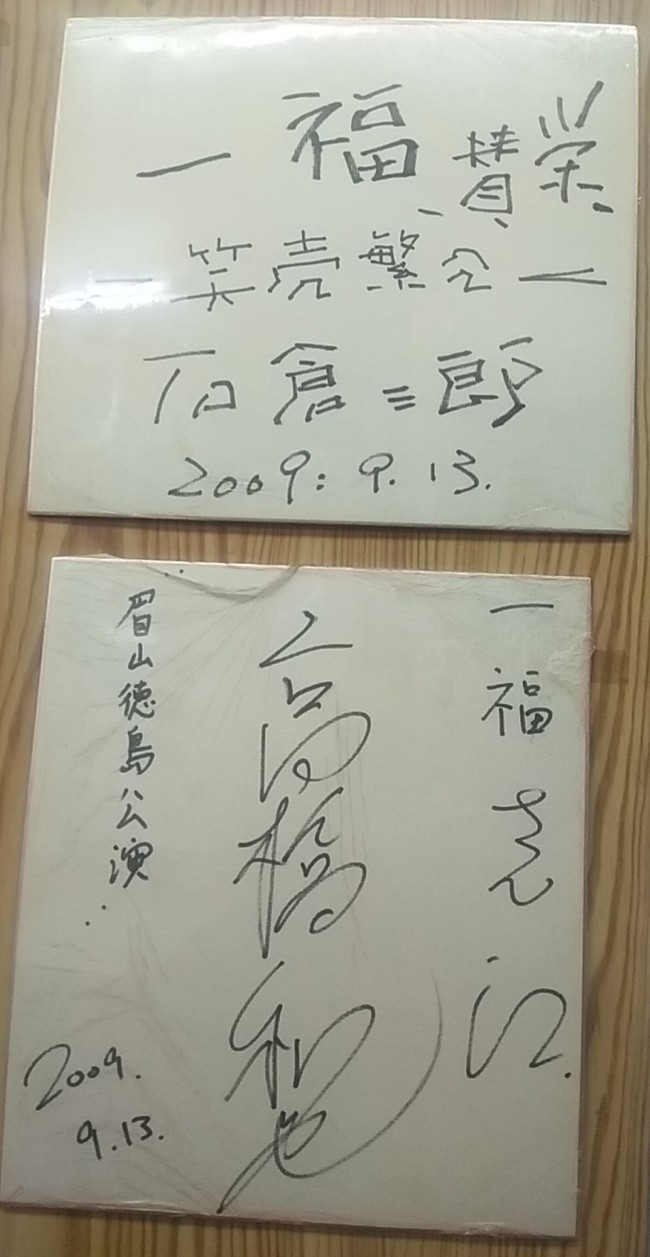 一福、賛栄
一笑売繁盛一
石倉三郎
2009.9.13.
一福さん江
高橋和也
眉山徳島公演
2009.
9.13.